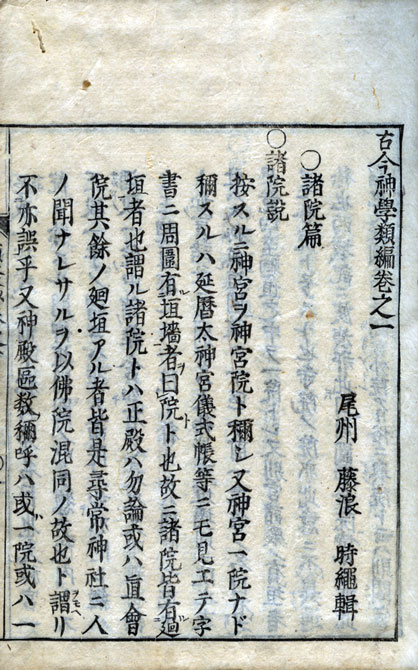 古今神學類編卷之一
尾州 藤浪 時繩輯
〇諸院篇
〇諸院説
按スルニ神宮ヲ神宮院ト稱シ又神宮一院ナド
稱スルハ延暦太神宮儀式帳等ニモ見エテ字
書ニ周圍有垣墻者曰院ト也故ニ諸院皆有廻
垣者也謂ル諸院トハ正殿ハ勿論或ハ直會
院其餘ノ廻垣アル者皆是尋常神社ニ人
ノ聞ナレサルヲ以佛院混同ノ故也ト謂リ
不亦誤乎又神殿區数稱呼ハ或一院或ハ一